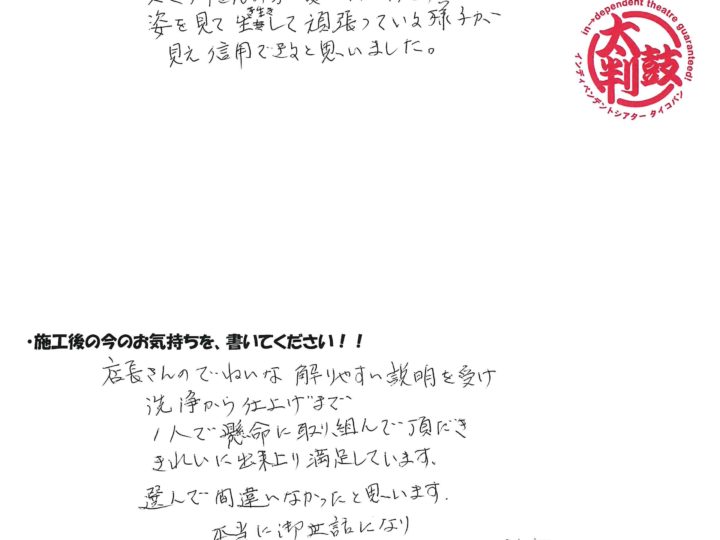 姿を見て生き生きして頑張っている様子が
見え信用で政と思いました。
in→dependent theatre guaranteed!
太鼓判
インディペンデントシアター タイコバン
・施工後の今のお気持ちを、書いてください！！
店長さんのていねいな 解りやすい説明を受け
洗浄から仕上げまで
1人で懸命に取り組んで頂だき
きれいに出来上り満足しています、
選んで間違いなかったと思います.
本当に御世話になり